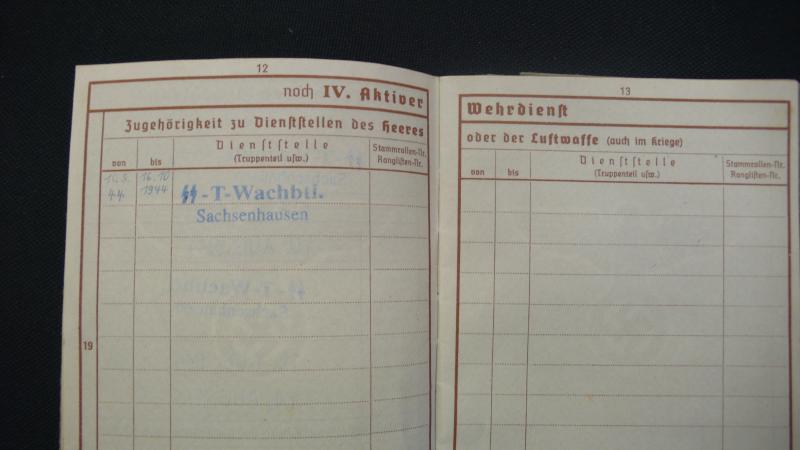 12
noch IV. Aktiver
Zugehörigkeit zu Dienststellen des Heeres
von
bis
Dienststelle
(Truppenteil usw.)
Stammrollen-Nr.
Ranglisten-Nr.
16.10
4.4.
1944
SS-T-Wachbtl.
Sachsenhausen
19
13
Wehrdienst
oder der Luftwaffe (auch im Kriege)
von
bis
Dienststelle
(Truppenteil usw.)
Stammrollen-Nr.
Ranglisten-Nr.